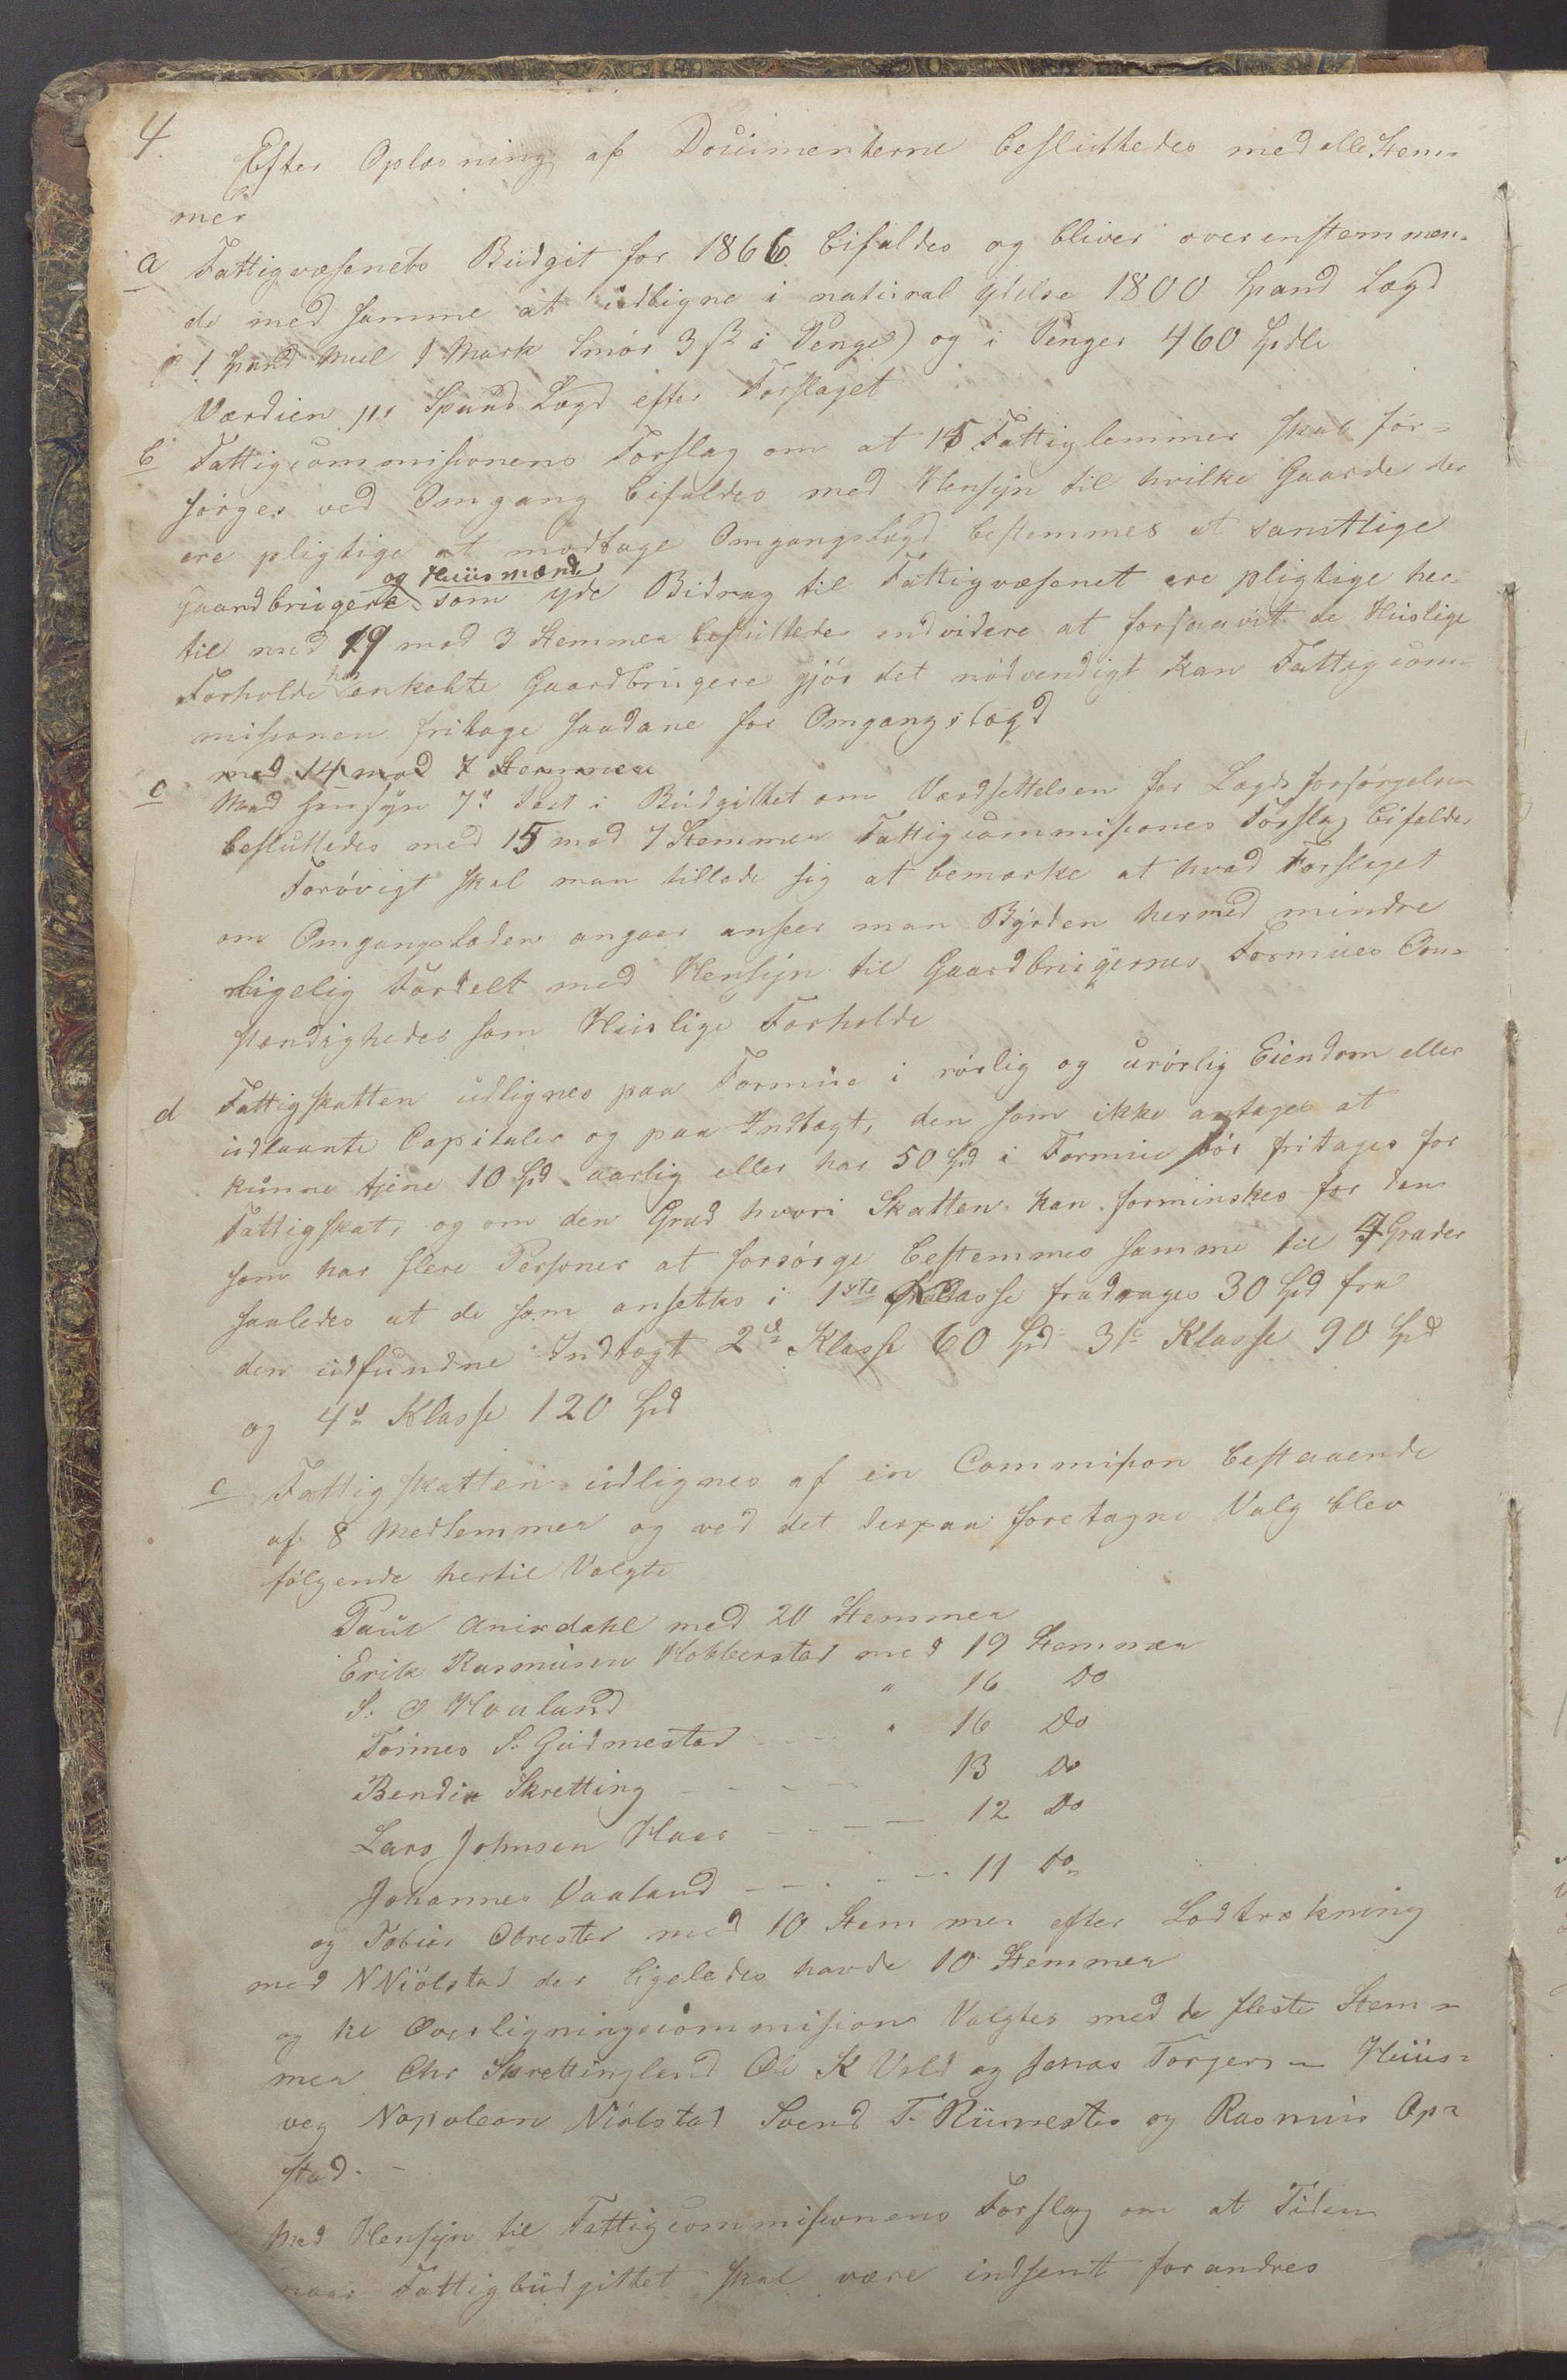 4.
Efter Oplæsning af Documenterne besluttedes med alle Stem-
mer
a Fattigvæsenets Budgit for 1866 bifaldes og bliver overenstemmen-
de med samme at udligne i natural ydelse 1800 Spand Lægd
1 Spand Meel 1 Mark Smør 3 ß i Penge) og i Penger 460 Spdlr
Værdien pr Spand Lægd efter Forslaget
b Fattigcommissionens Forslag om at 15 Fattiglemmer skal for-
sørges ved Omgang bifaldes med Hensyn til hvilke Gaarde der
ere pligtige at modtage Omgangslægd bestemmes at samtlige
og Huusmænd
Gaardbrugere som yde Bidrag til Fattigvæsenet ere pligtige her-
til med 19 mod 3 Stemmer besluttedes endvidere at forsaavit de Huslige
Forholde hos enkelte Gaardbrugere gjør det nødvendigt kan Fattigcom-
missionen fritage saadane for Omgangslægd
med 14 mod 7 Stemmer
c Med Hensyn 7de Post i Budgittet om Værdsettelsen for Lægdsforsørgelsen
besluttedes med 15 mod 7 Stemmer Fattigcommissiones Forslag bifaldes
Forøvigt skal man tillade sig at bemærke at hvad Forslaget
om Omgangslæden angaar anseer man Byrden hermed mindre
ligelig Fordelt med Hensyn til Gaardbrugernes Formues Om-
stændigheder som Huslige Forholde
d Fattigskatten udlignes paa Formue i rørlig og urørlig Eiendom eller
udlaante Capitaler og paa Indtægt, den som ikke antages at
kunne tjene 10 Spd aarlig eller har 50 Spd i Formue bør fritages for
Fattigskat, og om den Grad hvori Skatten kan forminskes for den
som har flere Personer at forsørge bestemmes samme til 4 Grader
saaledes at de som ansettes i 1ste Klasse fradrages 30 Spd fra
den udfundne Indtægt 2den Klasse 60 Spd 3die Klasse 90 Spd
og 4de Klasse 120 Spd
e Fattigskatten udlignes af en Commision bestaaende
af 8 Medlemmer og ved det derpaa foretagne Valg blev
følgende hertil Valgte
Paul Anisdahl med 20 Stemmer
Erik Rasmusen Hobberstad med 19 Stemmer
S. O Hauland " 16 Do
Tønnes S. Gudmestad " 16 Do
Bendix Skretting 13 Do
Lars Johnsen Haar 12 Do
Johannes Vaaland 11 Do
og Tobias Obrestad med 10 Stemmer efter Lodtrækning
med N Niølstad der ligeledes havde 10 Stemmer
og til Overligningscommission Valgtes med de fleste Stem-
mer Chr Skrettingland Ole K Vold og Jonas Torgersen Huus-
veg Napoleon Niølstad Svend T. Rimestad og Rasmus Op-
stad. -
Med Hensyn til Fattigcommissionens Forslag om at Tiden
naar Fattigbudgittet skal være indsent forandres